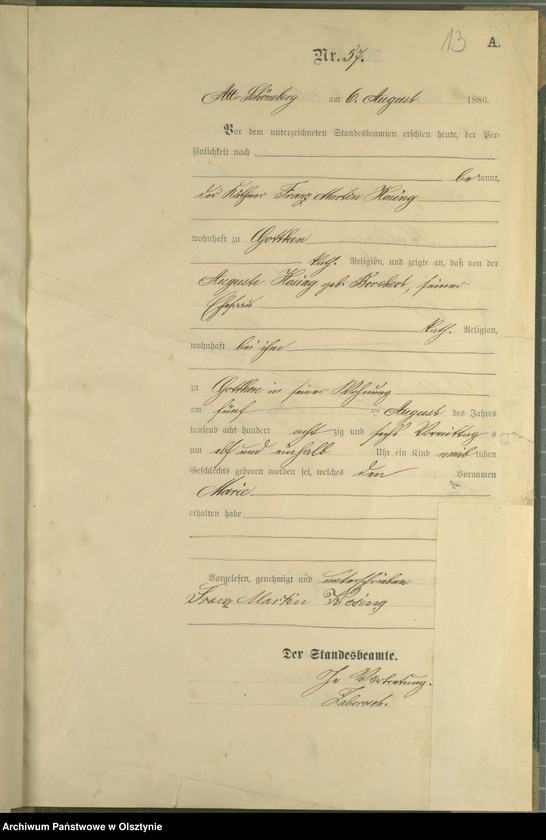 13 A.
Nr. 57.
Alt Schöneberg am 6. August 1886.
Vor dem unterzeichneten Standesbeamten erschien heute, der Per-
sönlichkeit nach
be kannt,
der Käthner Franz Martin Kaing
wohnhaft zu Gottken
kath. Religion, und zeigte an, daß von der
Auguste Kaing geb. Borchert, seiner
Ehefrau
kath. Religion,
wohnhaft bei ihm
zu Gottken in seiner Wohnung
am fünf ten August des Jahres
tausend acht hundert acht zig und sechs Vormittag s
um elf und einhalb Uhr ein Kind weib lichen
Geschlechts geboren worden sei, welches den Vornamen
Marie
erhalten habe
Vorgelesen, genehmigt und unterschrieben
Franz Martin
Der Standesbeamte.
In Vertretung.
Archiwum Państwowe w Olsztynie